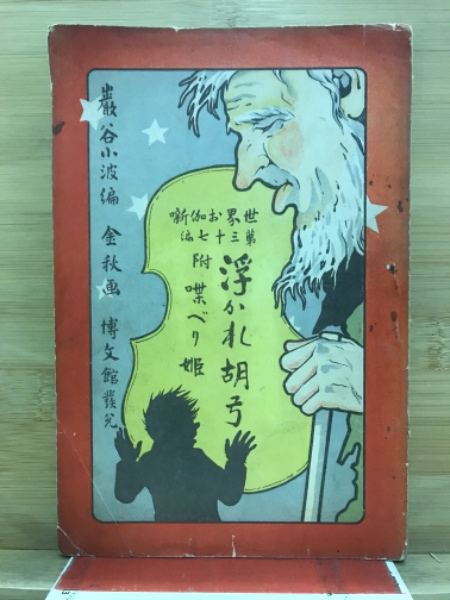 世界お伽噺
第三十七編
浮かれ胡弓
附 喋べり姫
巌谷小波編 金秋画 博文館発兌